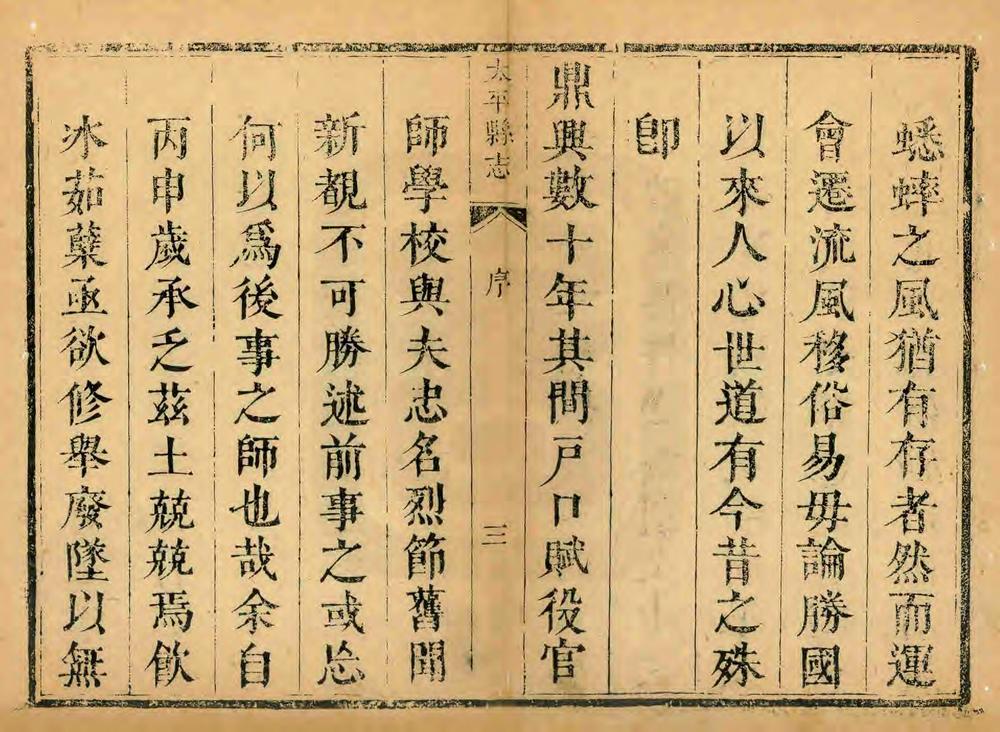 蟋蟀之風猶有存者然而運
會遷流風移俗易毋論勝國
以來人心世道有今昔之殊
卽
鼎興數十年其間戸口賦役官
太平縣志
序
三
師學校與夫忠名烈節舊聞
新覩不可勝述前事之或忘
何以爲後事之師也哉余自
丙申歲承乏茲土兢兢焉飮
冰茹蘗亟欲修舉廢墜以無